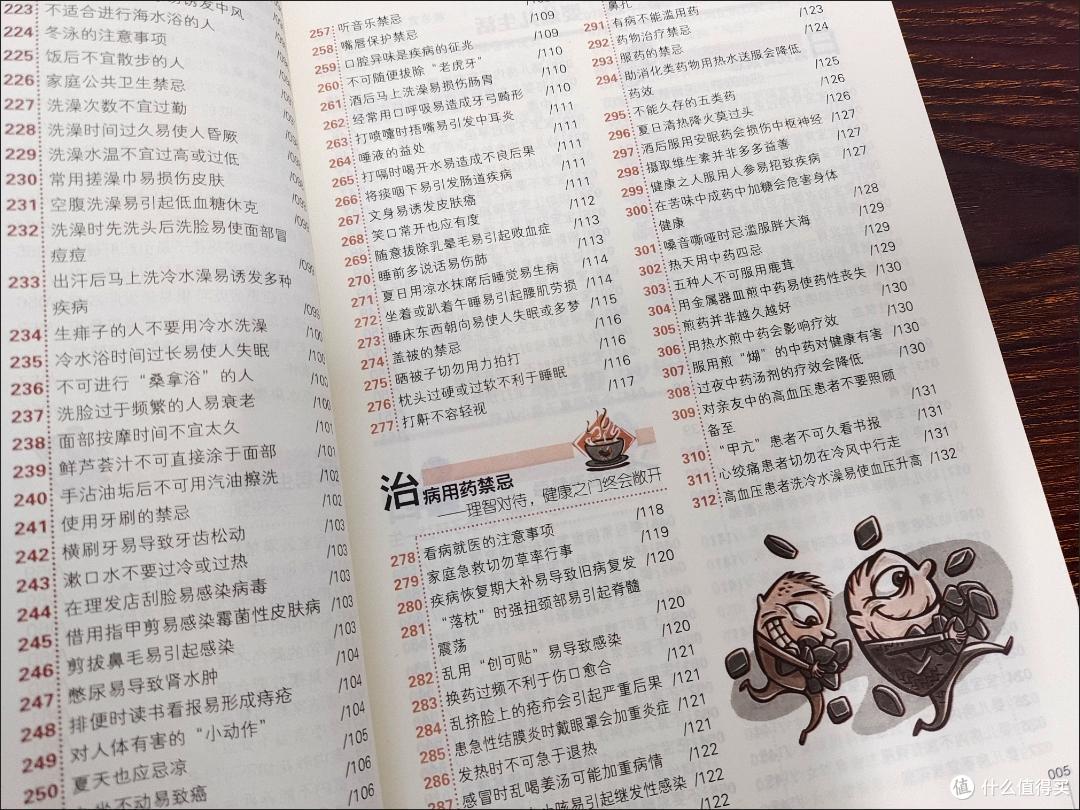 易诱发中风
223 不适合进行海水浴的人
224 冬泳的注意事项
225 饭后不宜散步的人
226 家庭公共卫生禁忌
227 洗澡次数不宜过勤
228 洗澡时间过久易使人昏厥
229 洗澡水温不宜过高或过低
230 常用搓澡巾易损伤皮肤
231 空腹洗澡易引起低血糖休克
232 洗澡时先洗头后洗脸易使面部冒
痘痘
233 出汗后马上洗冷水澡易诱发多种
疾病
234 生痱子的人不要用冷水洗澡
235 冷水浴时间过长易使人失眠
236 不可进行“桑拿浴”的人
237 洗脸过于频繁的人易衰老
238 面部按摩时间不宜太久 /101
239 鲜芦荟汁不可直接涂于面部 /101
240 手沾油垢后不可用汽油擦洗 /102
241 使用牙刷的禁忌 /102
242 横刷牙易导致牙齿松动 /103
243 漱口水不要过冷或过热 /103
244 在理发店刮脸易感染病毒 /103
245 借用指甲剪易感染霉菌性皮肤病 /103
246 剪拔鼻毛易引起感染 /103
247 憋尿易导致肾水肿 /104
248 排便时读书看报易形成痔疮 /104
249 对人体有害的“小动作” /104
250 夏天也应忌凉 /105
坐不动易致癌 /106
/106
257 听音乐禁忌
258 嘴唇保护禁忌 /109
259 口腔异味是疾病的征兆 /109
260 不可随便拔除“老虎牙” /110
261 酒后马上洗澡易损伤肠胃 /110
262 经常用口呼吸易造成牙弓畸形 /110
263 打喷嚏时捂嘴易引发中耳炎 /111
264 唾液的益处 /111
265 打嗝时喝开水易造成不良后果 /111
266 将痰咽下易引发肠道疾病 /111
267 文身易诱发皮肤癌 /111
268 笑口常开也应有度 /112
269 随意拔除乳晕毛易引起败血症 /113
270 睡前多说话易伤肺 /113
271 夏日用凉水抹席后睡觉易生病 /114
272 坐着或趴着午睡易引起腰肌劳损 /114
273 睡床东西朝向易使人失眠或多梦 /115
274 盖被的禁忌 /116
275 晒被子切勿用力拍打 /116
276 枕头过硬或过软不利于睡眠 /116
277 打鼾不容轻视 /117
治病用药禁忌
——理智对待，健康之门终会敞开
278 看病就医的注意事项 /118
279 家庭急救切勿草率行事 /119
280 疾病恢复期大补易导致旧病复发 /120
281 “落枕”时强扭颈部易引起脊髓
震荡 /120
282 乱用“创可贴”易导致感染 /120
283 换药过频不利于伤口愈合 /121
284 乱挤脸上的疮疖会引起严重后果 /121
285 患急性结膜炎时戴眼罩会加重炎症 /121
286 发热时不可急于退热 /121
287 感冒时乱喝姜汤可能加重病情 /122
咳易引起继发性感染 /122
/122
291 有病不能滥用药
292 药物治疗禁忌 /123
293 服药的禁忌 /124
294 助消化类药物用热水送服会降低
药效 /125
295 不能久存的五类药 /126
296 夏日清热降火莫过头 /126
297 酒后服用安眠药会损伤中枢神经 /127
298 摄取维生素并非多多益善 /127
299 健康之人服用人参易招致疾病 /127
300 在苦味中成药中加糖会危害身体
健康 /128
301 嗓音嘶哑时忌滥服胖大海 /129
302 热天用中药四忌 /129
303 五种人不可服用鹿茸 /129
304 用金属器皿煎中药易使药性丧失 /130
305 煎药并非越久越好 /130
306 用热水煎中药会影响疗效 /130
307 服用煎“煳”的中药对健康有害 /130
308 过夜中药汤剂的疗效会降低 /130
309 对亲友中的高血压患者不要照顾
备至 /131
310 “甲亢”患者不可久看书报 /131
311 心绞痛患者切勿在冷风中行走 /131
312 高血压患者洗冷水澡易使血压升高 /132
005
值 什么值得买